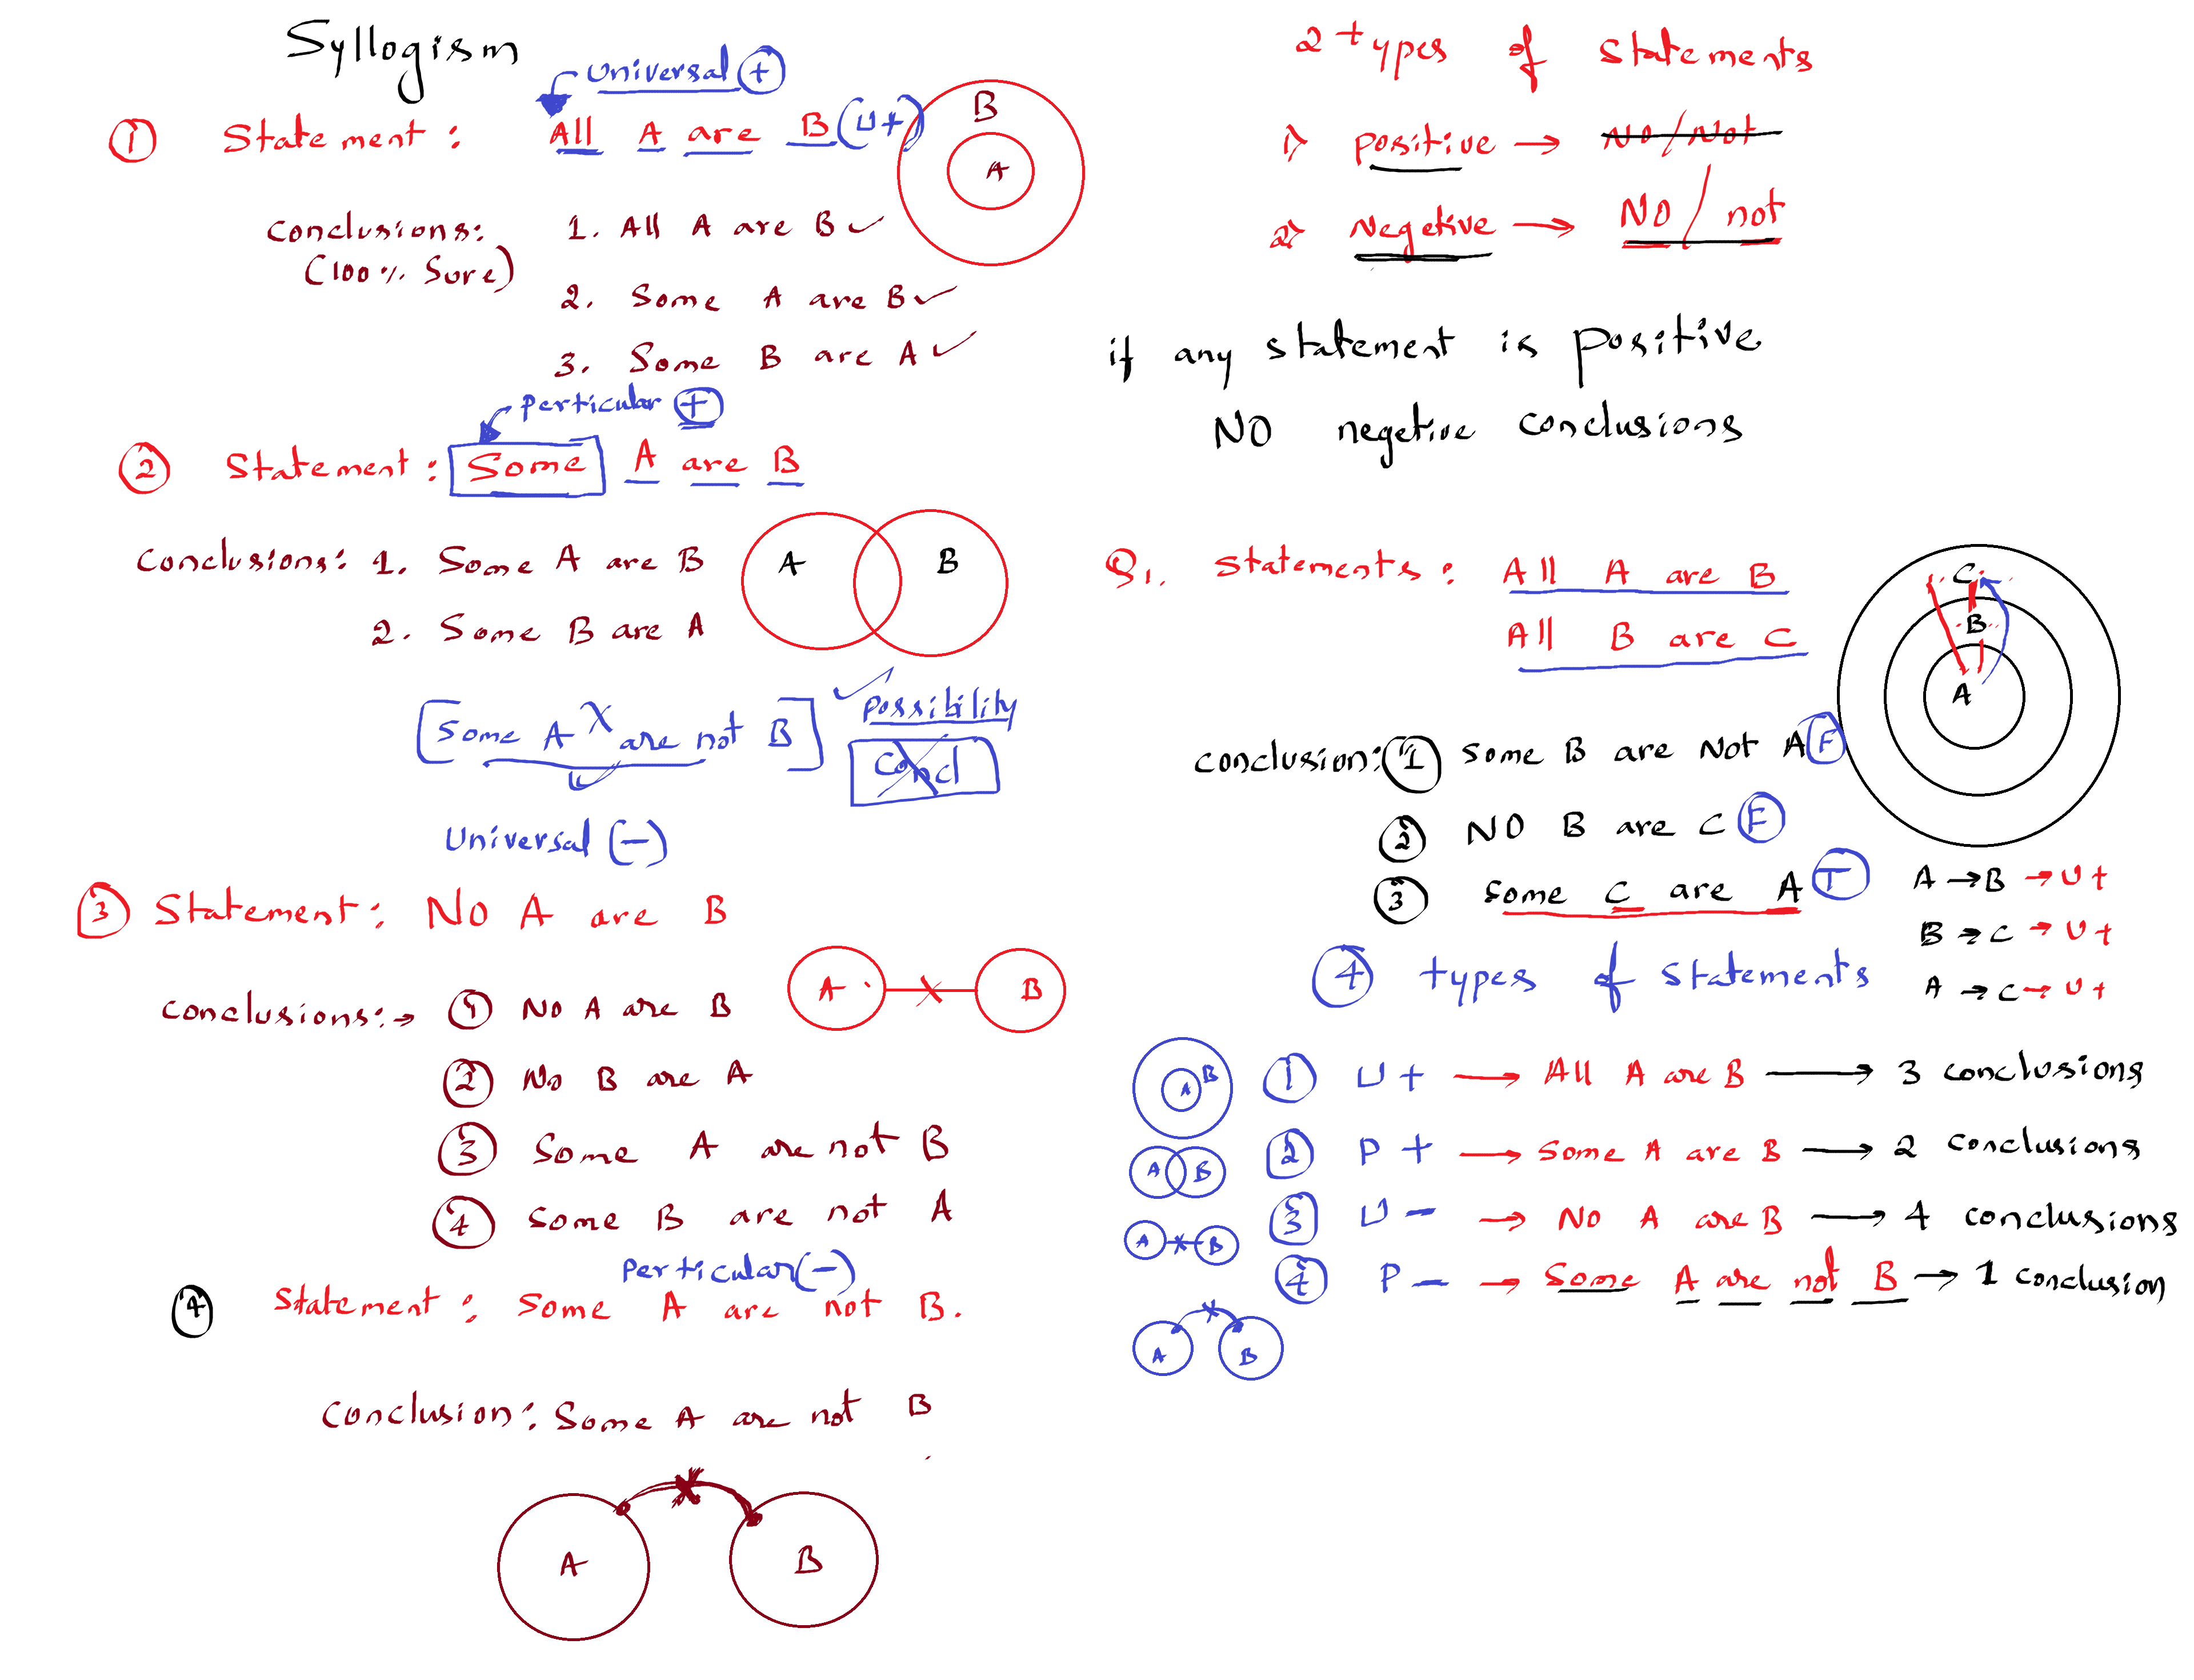 Syllogism
Universal (+)
① Statement : All A are B (U+)
B
A
Conclusions: 1. All A are B ✓
(100% Sure)
2. Some A are B ✓
3. Some B are A ✓
Perticular (+)
② Statement : Some A are B
Conclusions: 1. Some A are B
A B
2. Some B are A
[Some A are not B] X ✓ Possibility
Concl
Universal (-)
③ Statement : No A are B
A B
Conclusions:→ ① No A are B
② No B are A
③ Some A are not B
④ Some B are not A
Perticular (-)
④ Statement : Some A are not B.
Conclusion : Some A are not B
A B
2 types of statements
1> Positive → No/Not
2> Negetive → No/not
if any statement is positive
NO negetive conclusions
Q1. Statements : All A are B
All B are C
C
B
A
Conclusion: ① Some B are Not A (F)
② NO B are C (F)
③ Some C are A (T)
A → B → U+
B → C → U+
A → C → U+
④ types of statements
A B
① U+ → All A are B → 3 conclusions
A B
② P+ → Some A are B → 2 conclusions
A B
③ U- → No A are B → 4 conclusions
④ P- → Some A are not B → 1 conclusion
A B